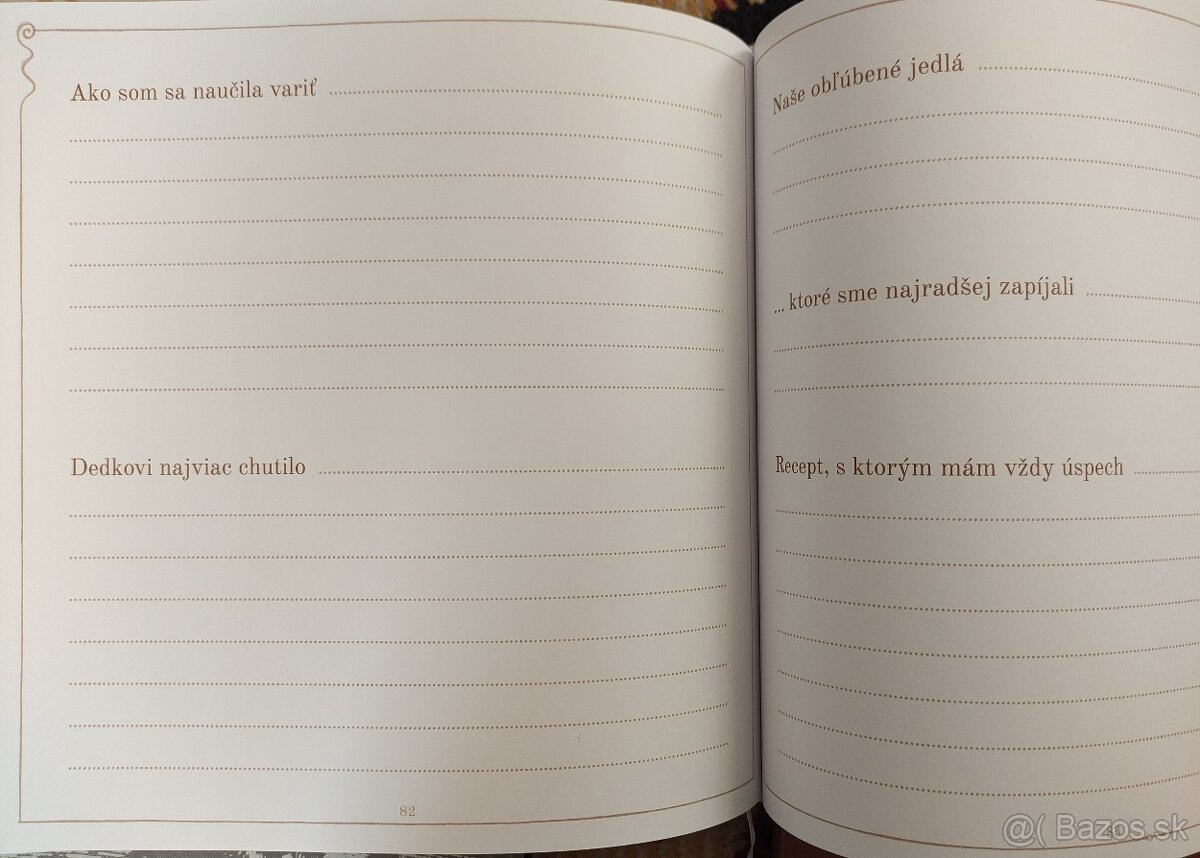 Ako som sa naučila variť
Dedkovi najviac chutilo
82
Naše obľúbené jedlá
... ktoré sme najradšej zapíjali
Recept, s ktorým mám vždy úspech
@( Bazos.sk